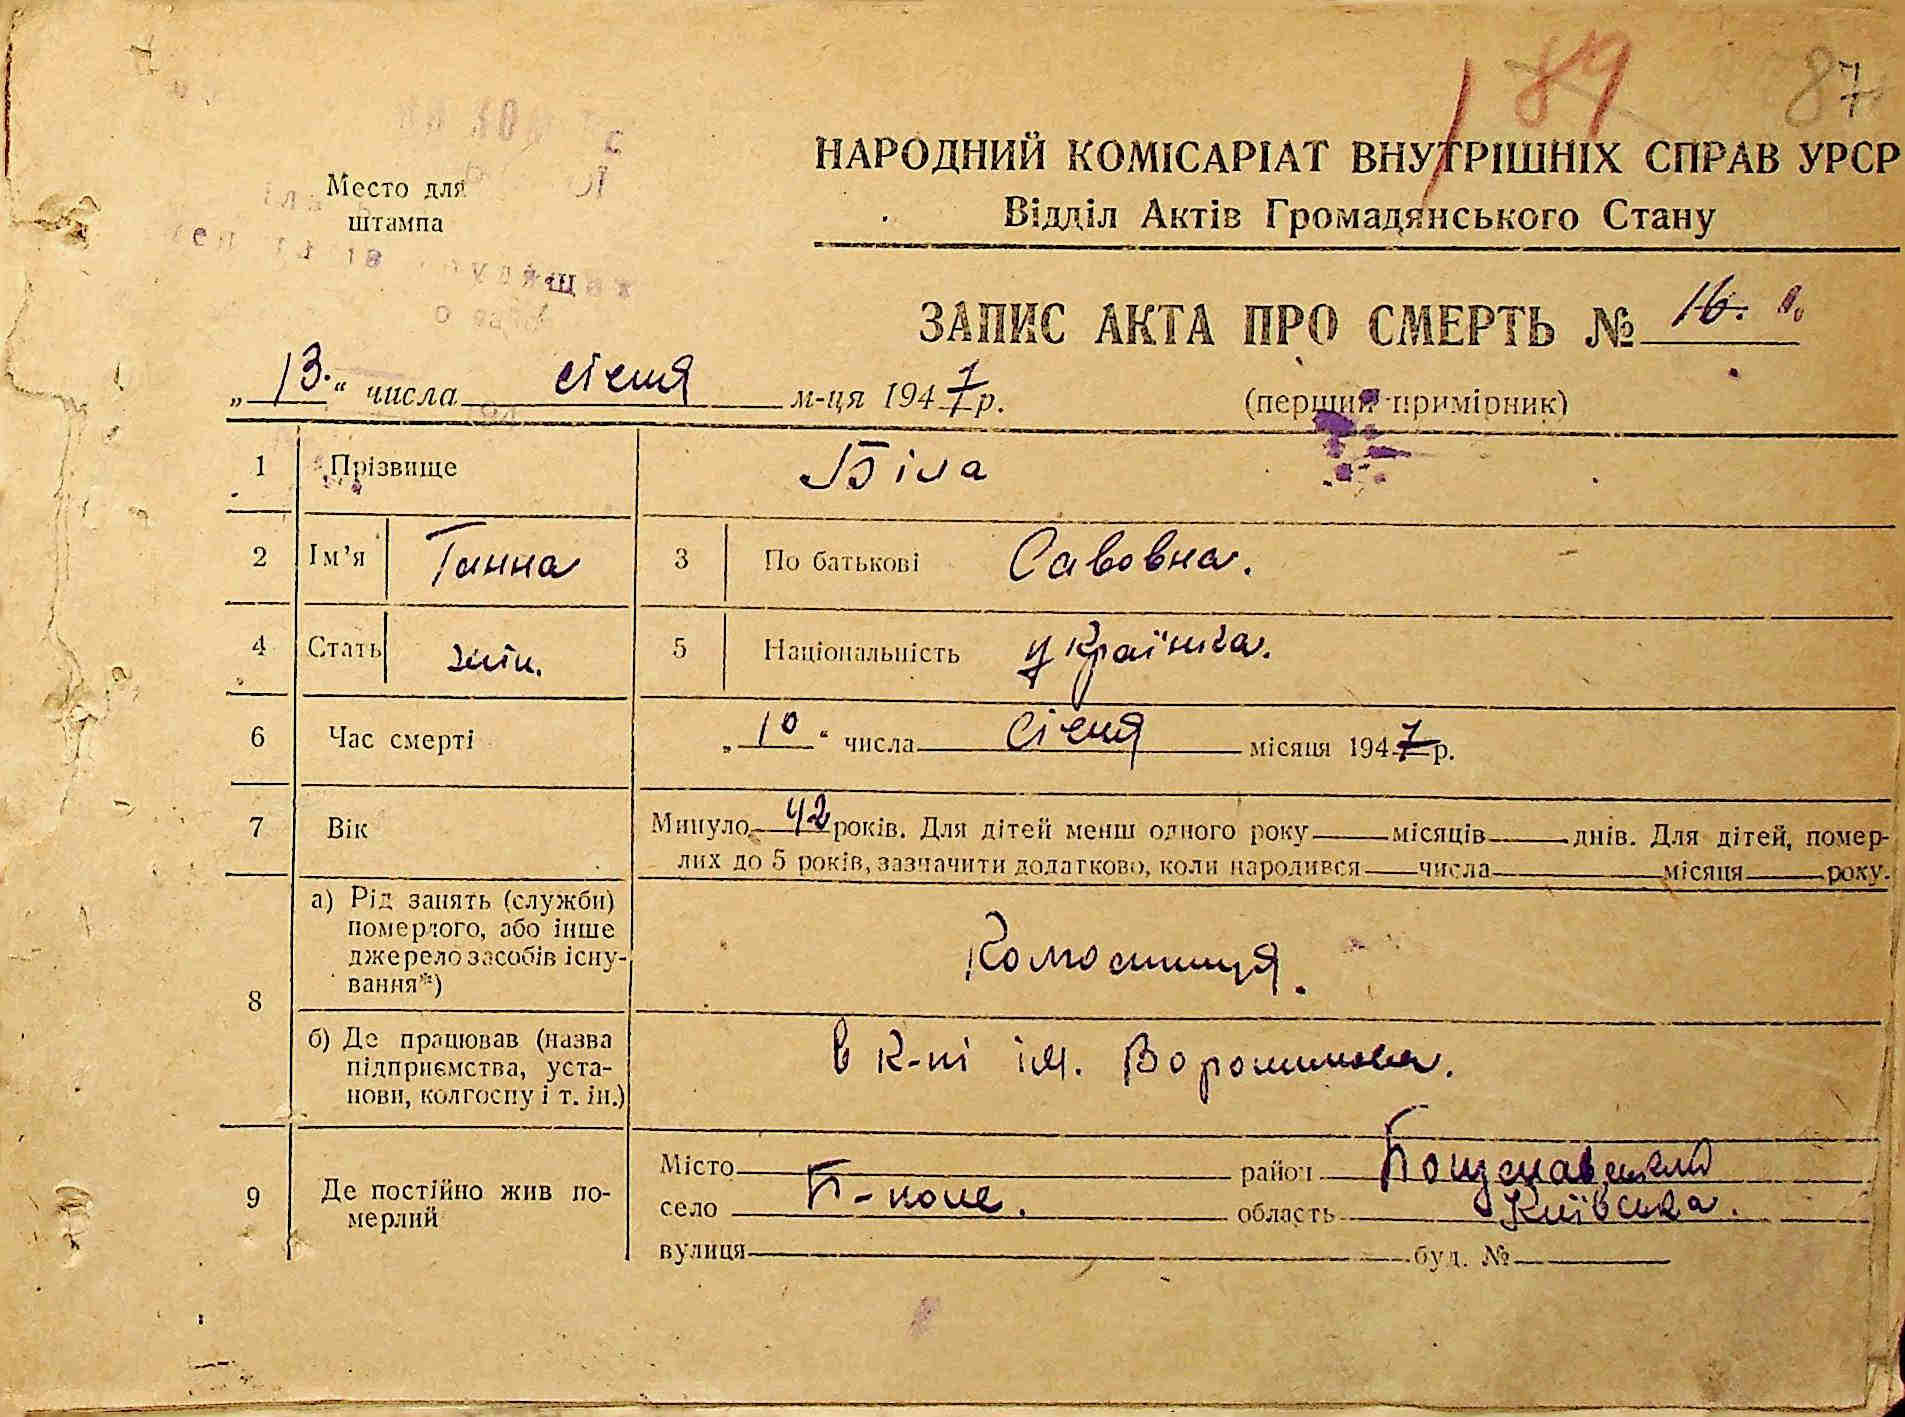 189 87
НАРОДНИЙ КОМІСАРІАТ ВНУТРІШНІХ СПРАВ УРСР
Відділ Актів Громадянського Стану
Место для
штампа
ЗАПИС АКТА ПРО СМЕРТЬ № 16.
„13.“ числа січня м-ця 1947 р.
(перший примірник)
1 Прізвище Біла
2 Ім’я Ганна 3 По батькові Савовна.
4 Стать жін. 5 Національність Українка.
6 Час смерті „10“ числа січня місяця 1947 р.
7 Вік Минуло 42 років. Для дітей менш одного року місяців днів. Для дітей, помер-
лих до 5 років, зазначити додатково, коли народився числа місяця року.
8 а) Рід занять (служби)
померлого, або інше
джерело засобів існу-
вання*)
Колгоспниця.
б) Де працював (назва
підприємства, уста-
нови, колгоспу і т. ін.)
в к-пі ім. Ворошилова.
9 Де постійно жив по-
мерлий
Місто район
село область Київська.
вулиця буд. №